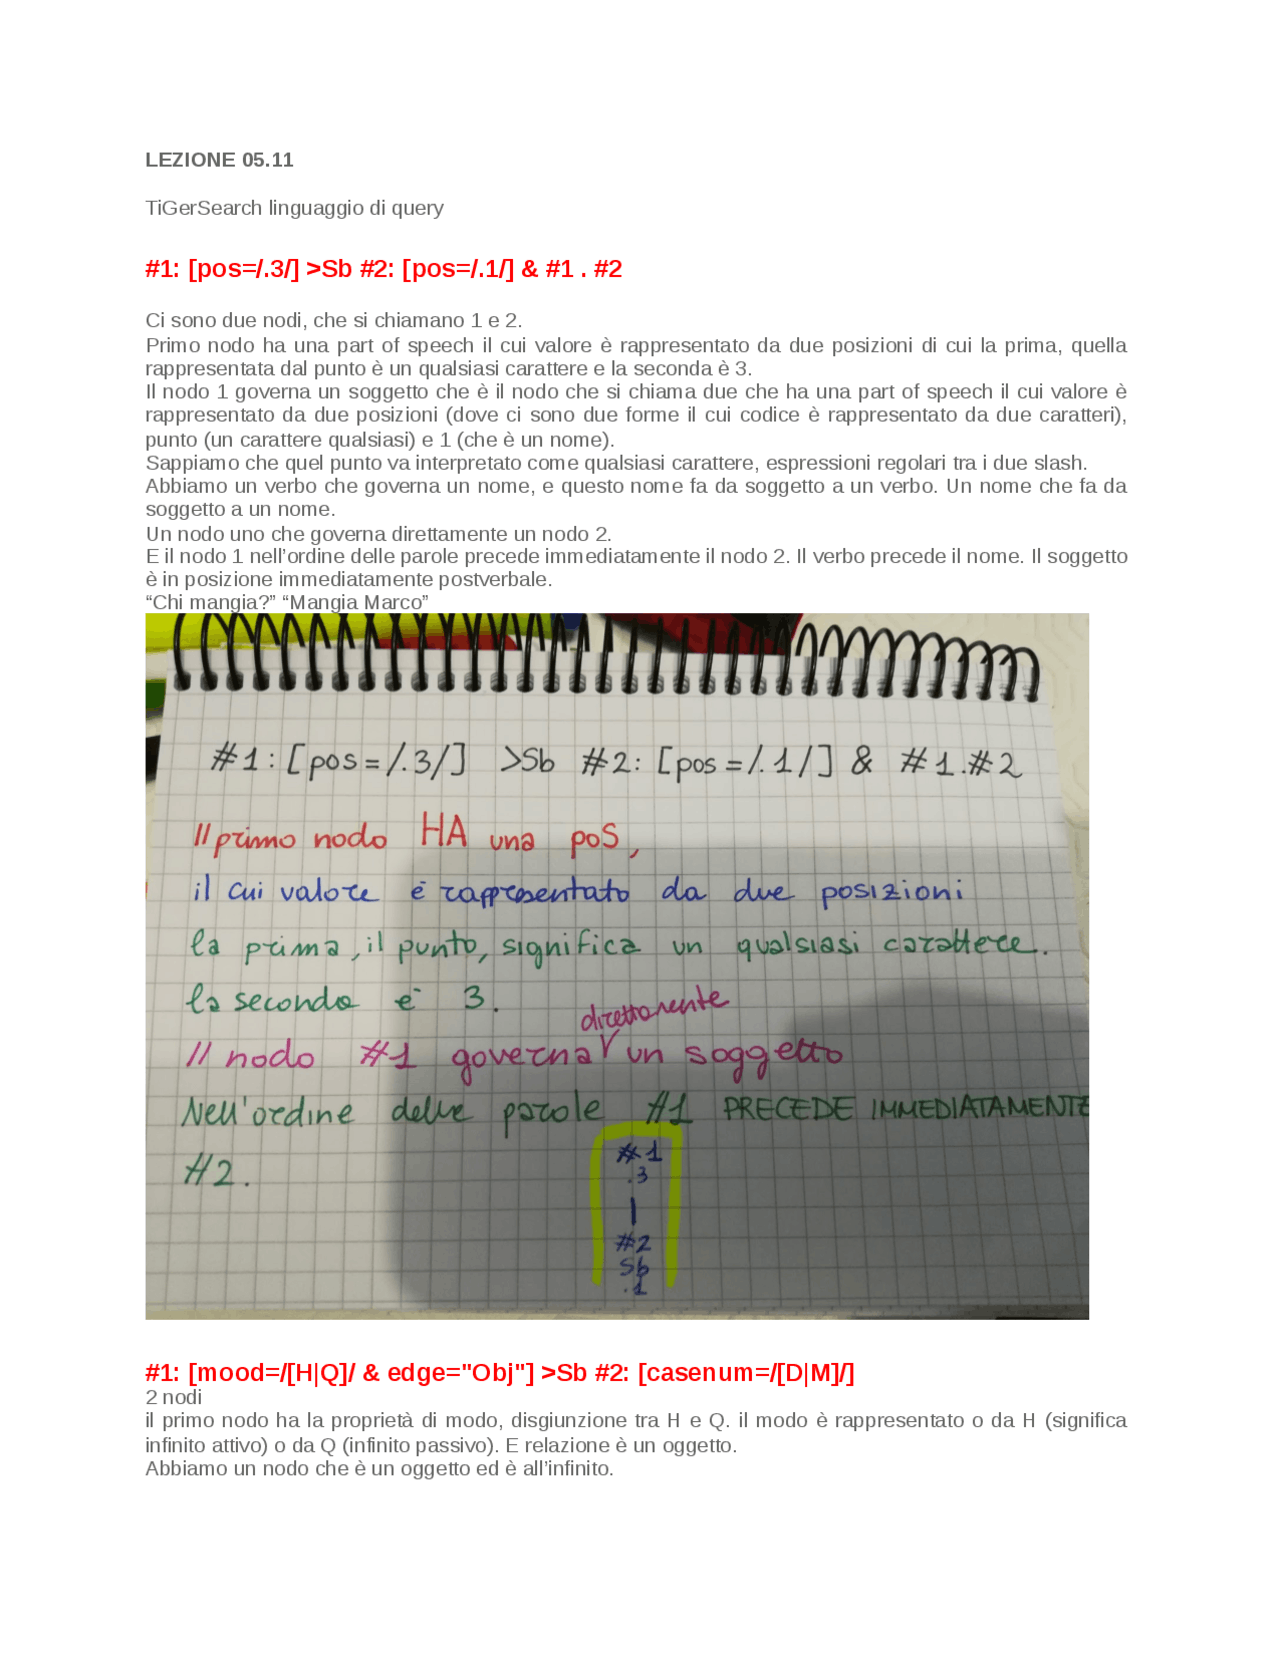 LEZIONE 05.11
TiGerSearch linguaggio di query
#1: [pos=/.3/] >Sb #2: [pos=/.1/] & #1 . #2
Ci sono due nodi, che si chiamano 1 e 2.
Primo nodo ha una part of speech il cui valore è rappresentato da due posizioni di cui la prima, quella
rappresentata dal punto è un qualsiasi carattere e la seconda è 3.
Il nodo 1 governa un soggetto che è il nodo che si chiama due che ha una part of speech il cui valore è
rappresentato da due posizioni (dove ci sono due forme il cui codice è rappresentato da due caratteri),
punto (un carattere qualsiasi) e 1 (che è un nome).
Sappiamo che quel punto va interpretato come qualsiasi carattere, espressioni regolari tra i due slash.
Abbiamo un verbo che governa un nome, e questo nome fa da soggetto a un verbo. Un nome che fa da
soggetto a un nome.
Un nodo uno che governa direttamente un nodo 2.
E il nodo 1 nell’ordine delle parole precede immediatamente il nodo 2. Il verbo precede il nome. Il soggetto
è in posizione immediatamente postverbale.
“Chi mangia?” “Mangia Marco”
#1: [pos=/.3/] >Sb #2: [pos=/.1/] & #1.#2
// primo nodo HA una poS,
il cui valore è rappresentato da due posizioni
la prima, il punto, significa un qualsiasi carattere.
la seconda è 3.
direttamente
// nodo #1 governa un soggetto
Nell'ordine delle parole #1 PRECEDE IMMEDIATAMENTE
#2.
#1
.3
|
#2
Sb
.1
#1: [mood=/[H|Q]/ & edge="Obj"] >Sb #2: [casenum=/[D|M]/]
2 nodi
il primo nodo ha la proprietà di modo, disgiunzione tra H e Q. il modo è rappresentato o da H (significa
infinito attivo) o da Q (infinito passivo). E relazione è un oggetto.
Abbiamo un nodo che è un oggetto ed è all’infinito.